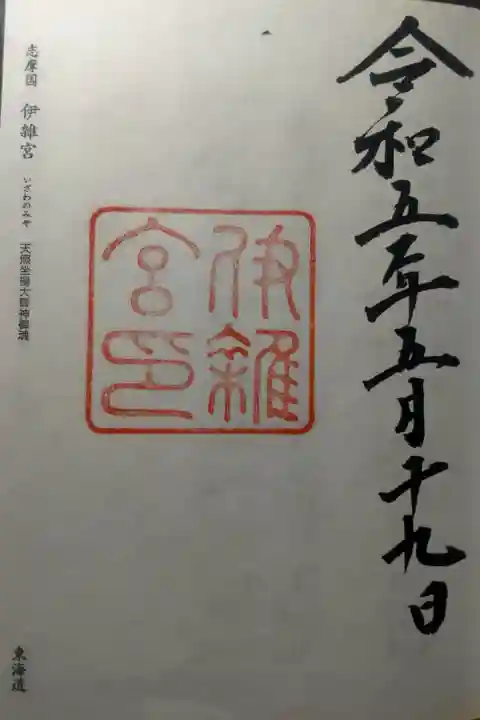 令和五年五月十九日
伊雑
宮印
志摩国 伊雜宮 いざわのみや 天照坐皇大御神御魂
東海道